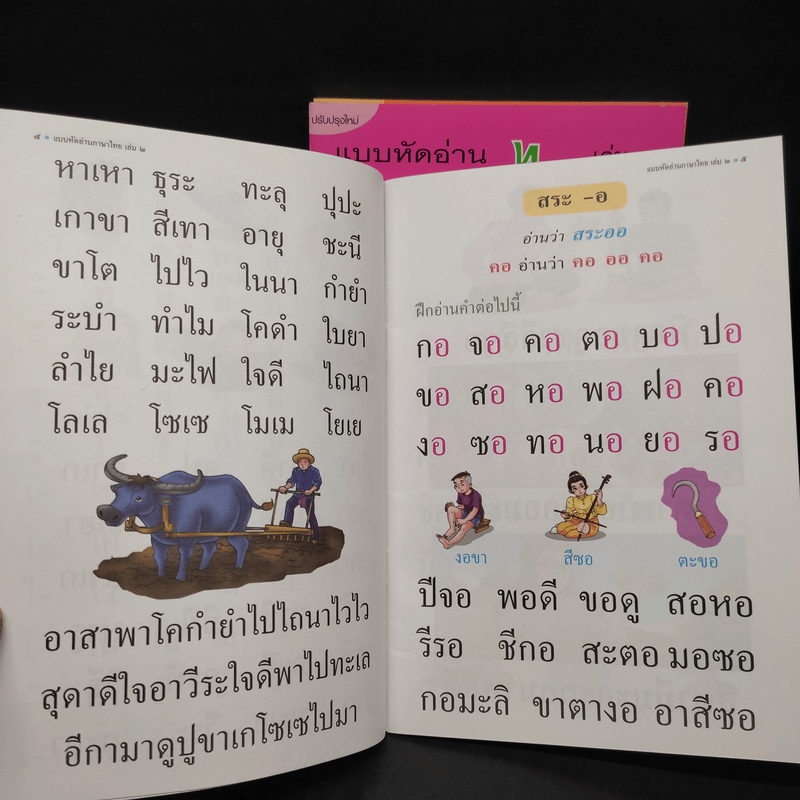 ปรับปรุงใหม่
แบบหัดอ่าน ท
๔ • แบบหัดอ่านภาษาไทย เล่ม ๒
หาเหา ธุระ ทะลุ ปุปะ
เกาขา สีเทา อายุ ชะนี
ขาโต ไปไว ในนา กำยำ
ระบำ ทำไม โคดำ ใบยา
ลำไย มะไฟ ใจดี ไถนา
โลเล โซเซ โมเม โยเย
อาสาพาโคกำยำไปไถนาไวไว
สุดาดีใจอาวีระใจดีพาไปทะเล
อีกามาดูปูขาเกโซเซไปมา
แบบหัดอ่านภาษาไทย เล่ม ๒ • ๕
สระ -อ
อ่านว่า สระออ
คอ อ่านว่า คอ ออ คอ
ฝึกอ่านคำต่อไปนี้
กอ จอ คอ ตอ บอ ปอ
ขอ สอ หอ พอ ฝอ คอ
งอ ซอ ทอ นอ ยอ รอ
งอขา สีซอ ตะขอ
ปีจอ พอดี ขอดู สอหอ
รีรอ ชีกอ สะตอ มอซอ
กอมะลิ ขาตางอ อาสีซอ